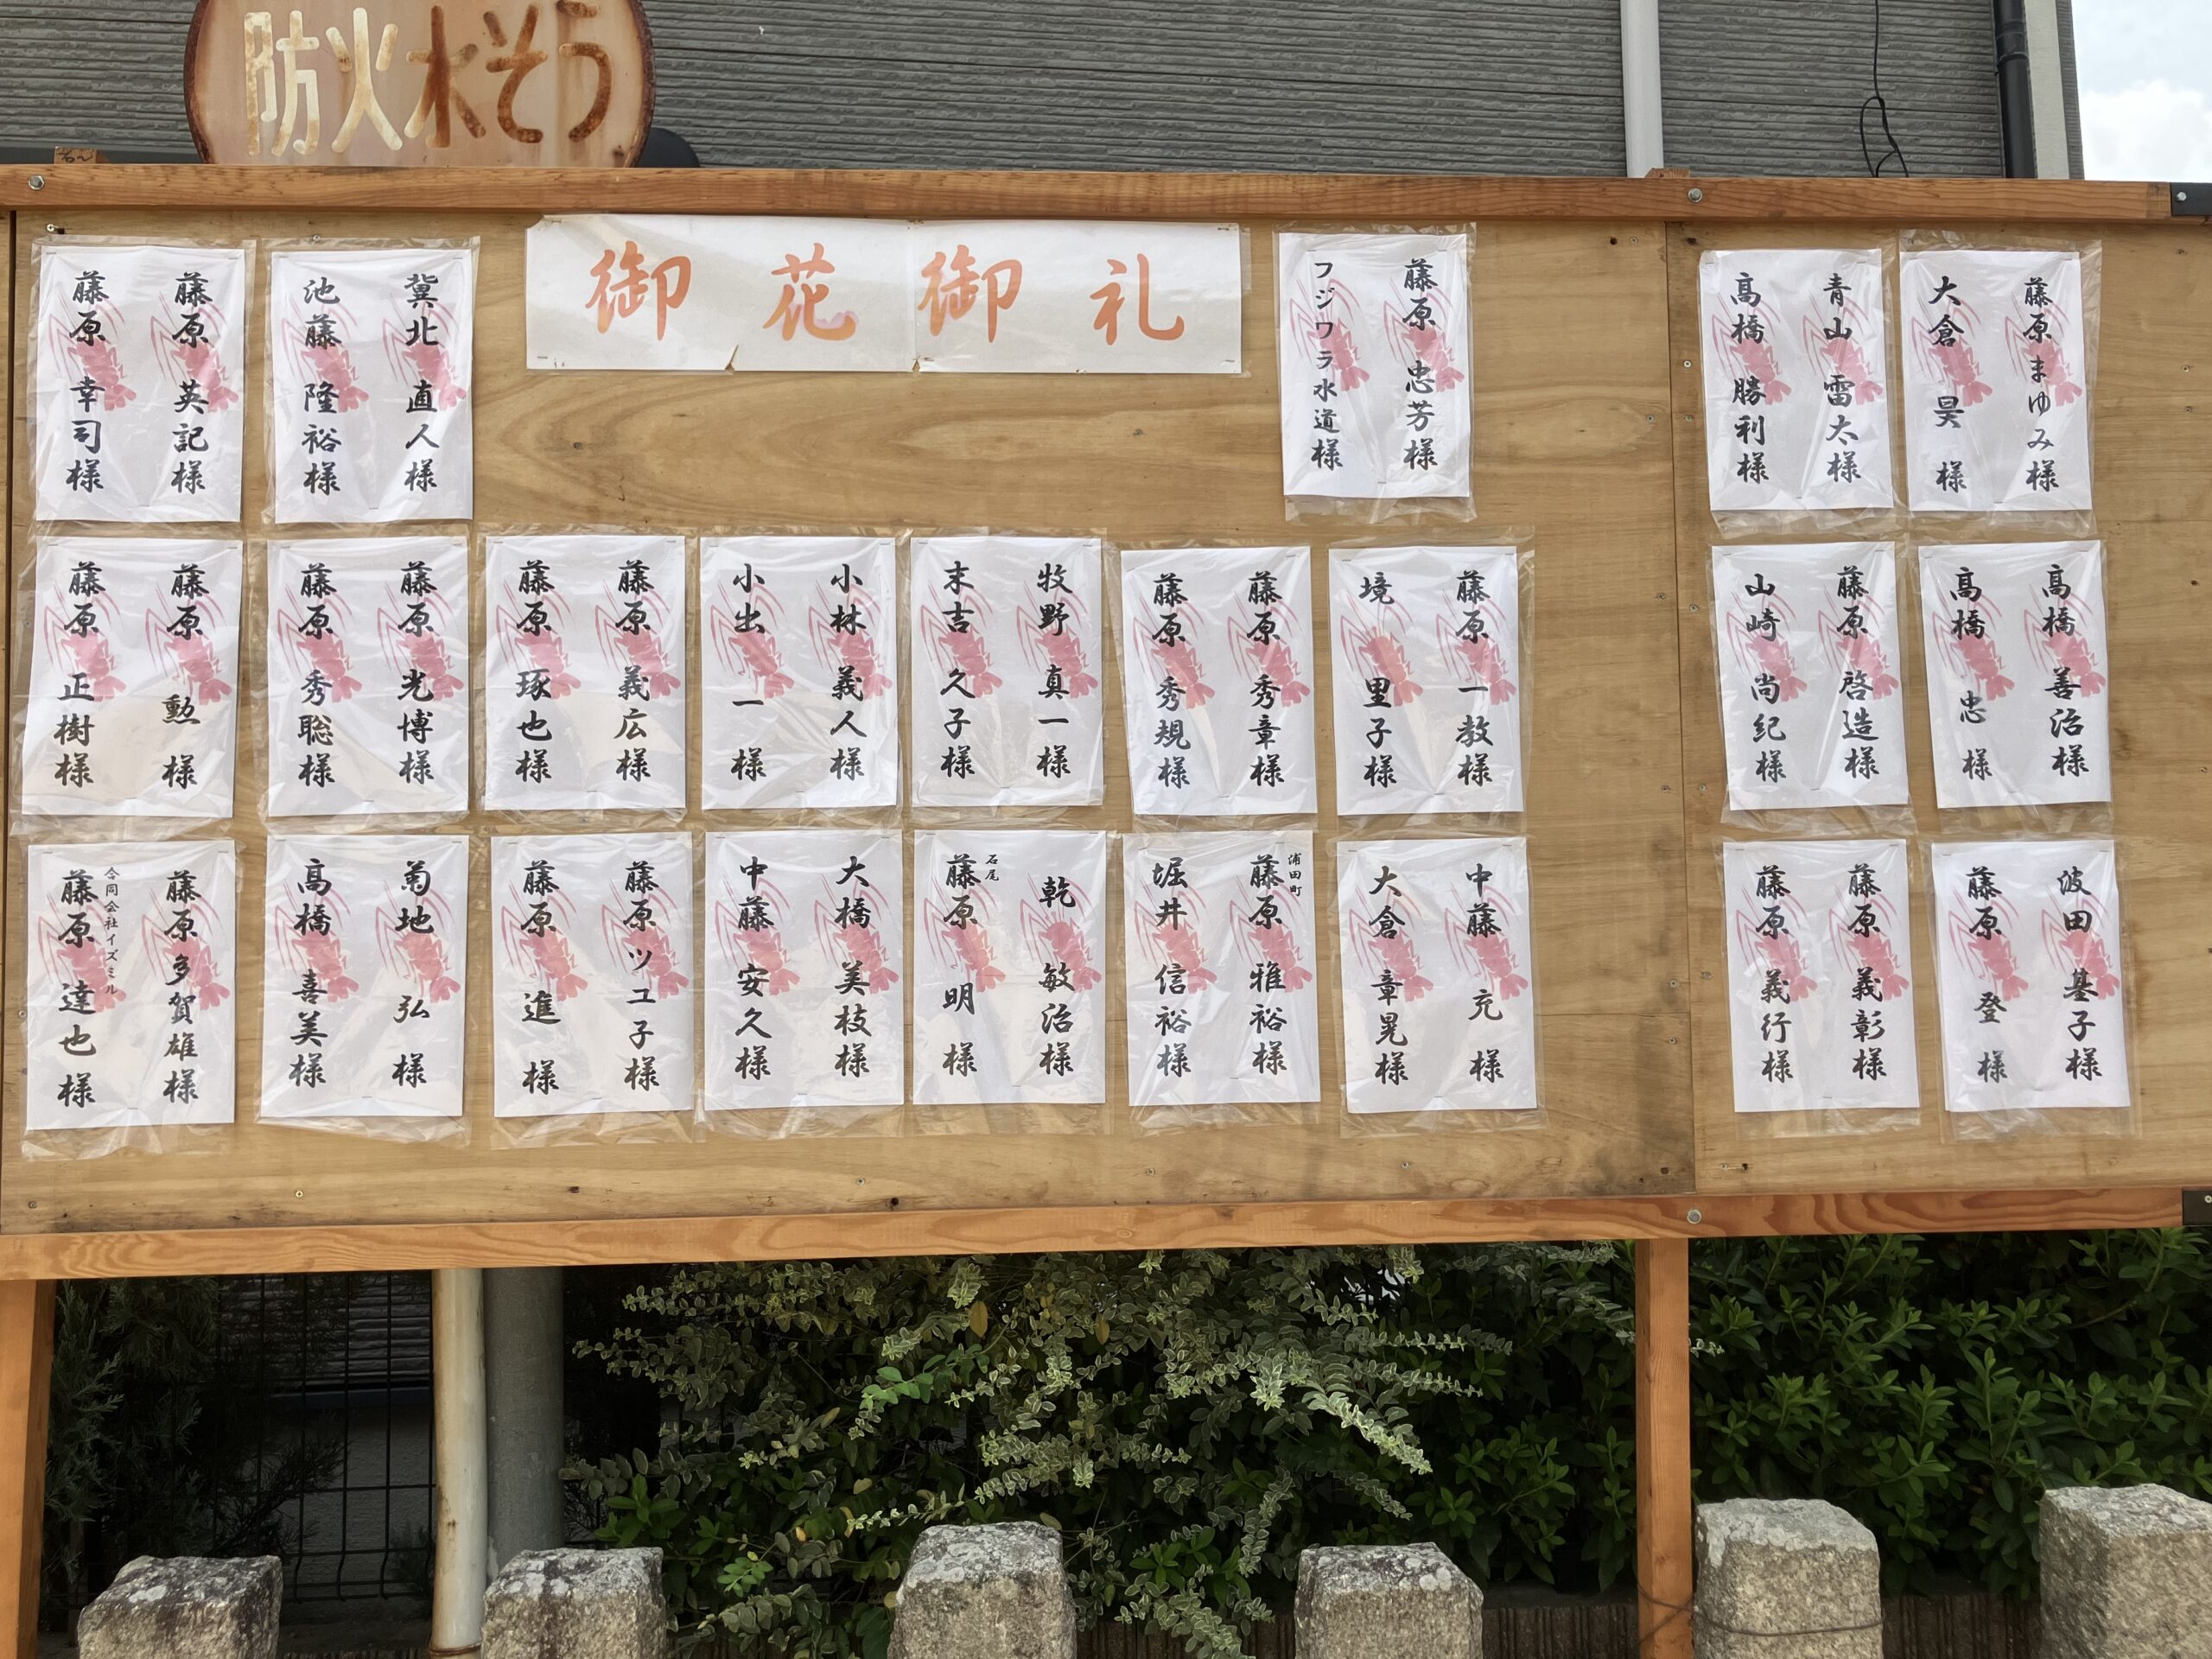 防火水そう
御花御礼
藤原まゆみ様
大倉 昊 様
青山 雷太様
髙橋 勝利様
藤原 忠芳様
フジワラ水道様
冀北 直人様
池藤 隆裕様
藤原 英記様
藤原 幸司様
髙橋 善治様
髙橋 忠 様
藤原 啓造様
山崎 尚紀様
藤原 一教様
境 里子様
藤原 秀章様
藤原 秀規様
牧野 真一様
末吉 久子様
小林 義人様
小出 一 様
藤原 義広様
藤原 琢也様
藤原 光博様
藤原 秀聡様
藤原 勲 様
藤原 正樹様
波田 基子様
藤原 登 様
藤原 義彰様
藤原 義行様
中藤 充 様
大倉 章晃様
浦田町
藤原 雅裕様
堀井 信裕様
乾 敏治様
石尾
藤原 明 様
大橋 美枝様
中藤 安久様
藤原ツユ子様
藤原 進 様
菊地 弘 様
髙橋 喜美様
藤原多賀雄様
合同会社イズミル
藤原 達也様